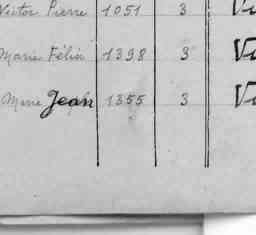 Victor Pierre 1051 3 Vi
Marie Félix 1398 3 Vi
Marie Jean 1355 3 Vi